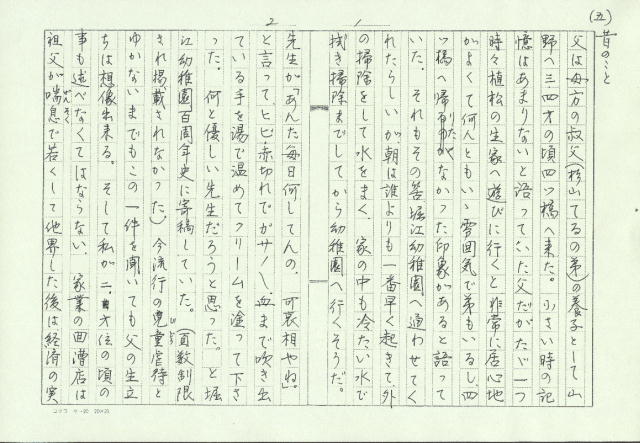 (五)
昔のこと
父は母方の叔父(杉山てるの弟)の養子として山
野へ三、四才の頃四ツ橋へ来た。小さい時の記
憶はあまりないと語っていた父だがたゞ一つ
時々植松の生家へ遊びに行くと非常に居心地
がよくて何んともいゝ雰囲気で弟もいるし四
ツ橋へ帰りたがなかった印象があると語って
いた。それもその筈堀江幼稚園へ通わせてく
れたらしいが朝は誰よりも一番早く起きて、外
の掃除をして水をまく、家の中も冷たい水で
拭き掃除までしてから幼稚園へ行くそうだ。
先生が「あんた毎日何してんの、可哀相やね」
と言って、ヒビ赤切れでガサ〳〵血まで吹き出
ている手を湯で温めてクリームを塗って下さ
った。何と優しい先生だろうと思った。と堀
江幼稚園百周年史に寄稿していた。(頁数制限
され掲載されなかった)今流行の児童虐待と
ゆかないまでもこの一件を聞いても父の生立
ちは想像出来る。そして私が二才位の頃の
事も述べなくてはならない、家業の回漕店は
祖父が喘息で若くして他界した後は経済の実
ぜんそく
じどう
1
2
コクヨ ケ-20 20×20